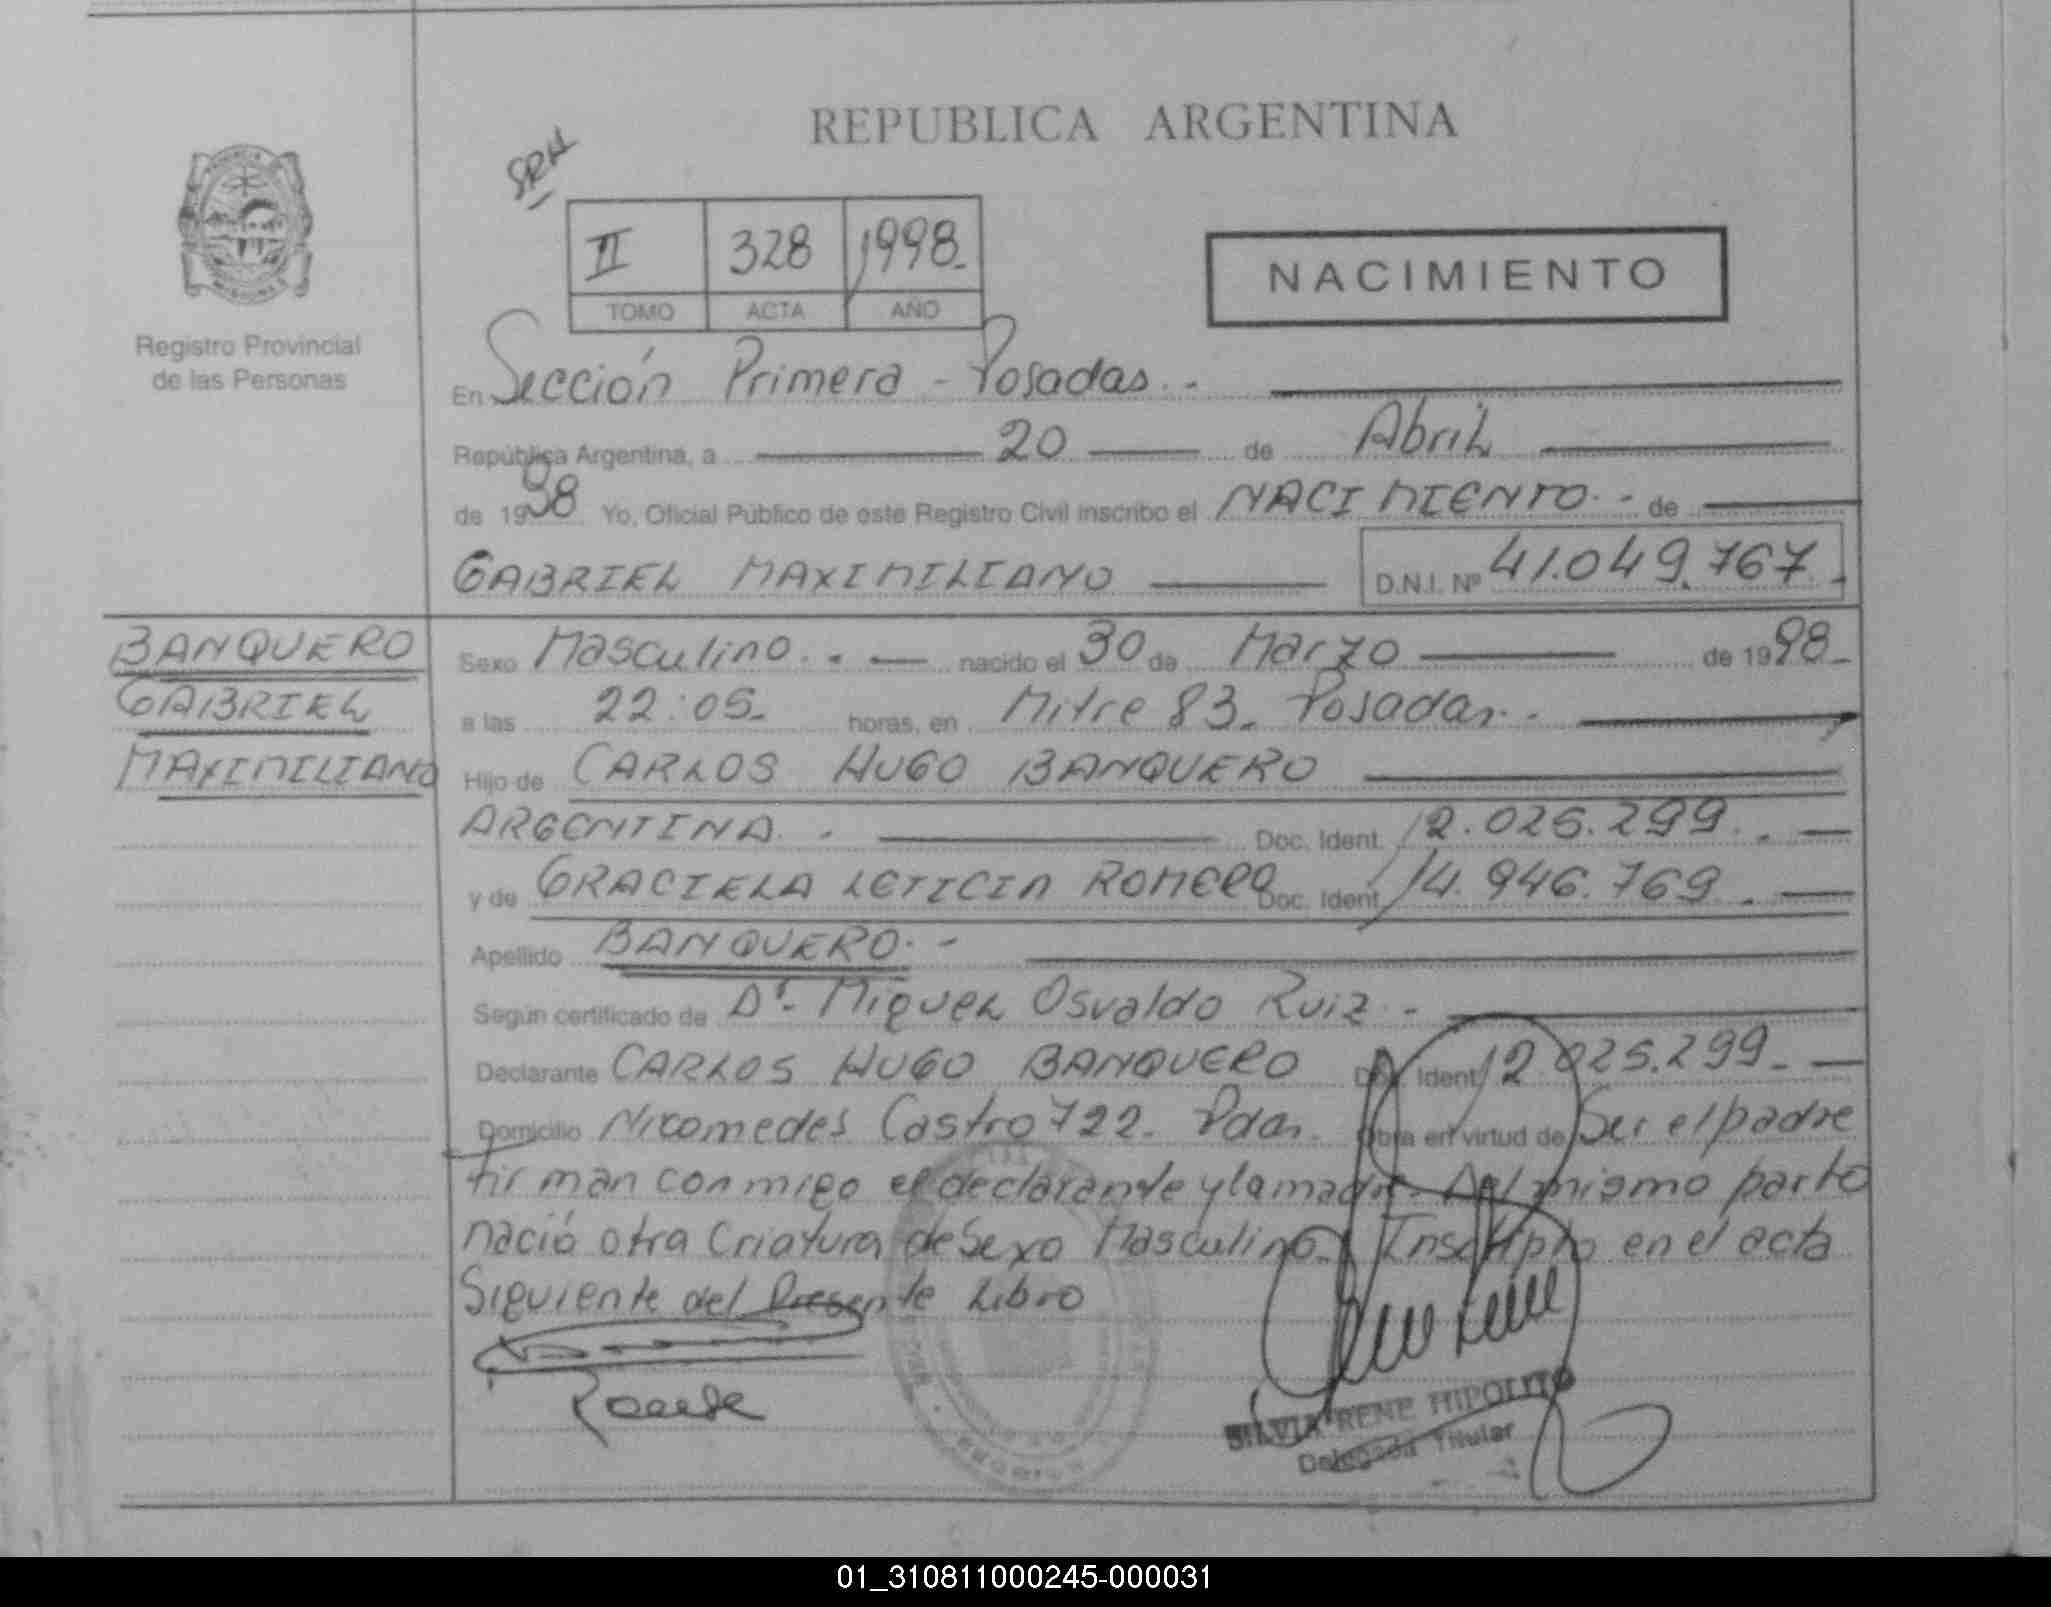 REPUBLICA ARGENTINA
SRH
II 328 1998.
TOMO ACTA AÑO
NACIMIENTO
Registro Provincial
de las Personas
En Sección Primera - Posadas.-
República Argentina, a 20 de Abril
de 1998 Yo, Oficial Público de este Registro Civil inscribo el NACIMIENTO.- de
GABRIEL MAXIMILIANO D.N.I. Nº 41.049.767.
BANQUERO
GABRIEL
MAXIMILIANO
Sexo Masculino.- nacido el 30 de Marzo de 1998
a las 22:05. horas, en Mitre 83. Posadas.
Hijo de CARLOS HUGO BANQUERO
ARGENTINA. Doc. Ident. 12.026.299.
y de GRACIELA LETICIA ROMERO Doc. Ident. 14.946.769.
Apellido BANQUERO.-
Según certificado de Dr. Miguel Osvaldo Ruiz.-
Declarante CARLOS HUGO BANQUERO Doc. Ident. 12.026.299.
Domicilio Nicomedes Castro 722. Pdas. Obra en virtud de Ser el padre
firman conmigo el declarante y la madre. Del mismo parto
nació otra Criatura de Sexo Masculino. Inscripto en el acta
Siguiente del Presente Libro
SILVIA RENE HIPOLITO
Delegada Titular
01_310811000245-000031